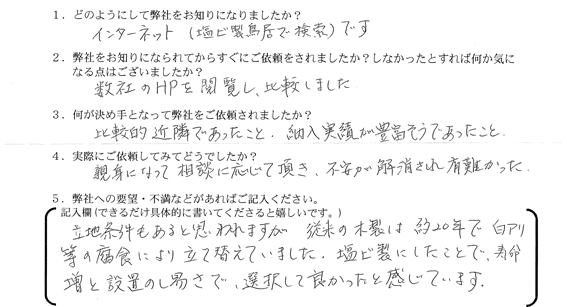 1．どのようにして弊社をお知りになりましたか？
インターネット（塩ビ製鳥居で検索）です
2．弊社をお知りになられてからすぐにご依頼をされましたか？しなかったとすれば何か気に
なる点はございましたか？
数社のHPを閲覧し、比較しました
3．何が決め手となって弊社をご依頼されましたか？
比較的近隣であったこと．納入実績が豊富そうであったこと．
4．実際にご依頼してみてどうでしたか？
親身になって相談に応じて頂き、不安が解消され有難かった．
5．弊社への要望・不満などがあればご記入ください。
記入欄(できるだけ具体的に書いてくださると嬉しいです。)
立地条件もあると思われますが 従来の木製は約20年で白アリ
等の腐食により立て替えていました．塩ビ製にしたことで、寿命
増と設置のし易さで、選択して良かったと感じています．